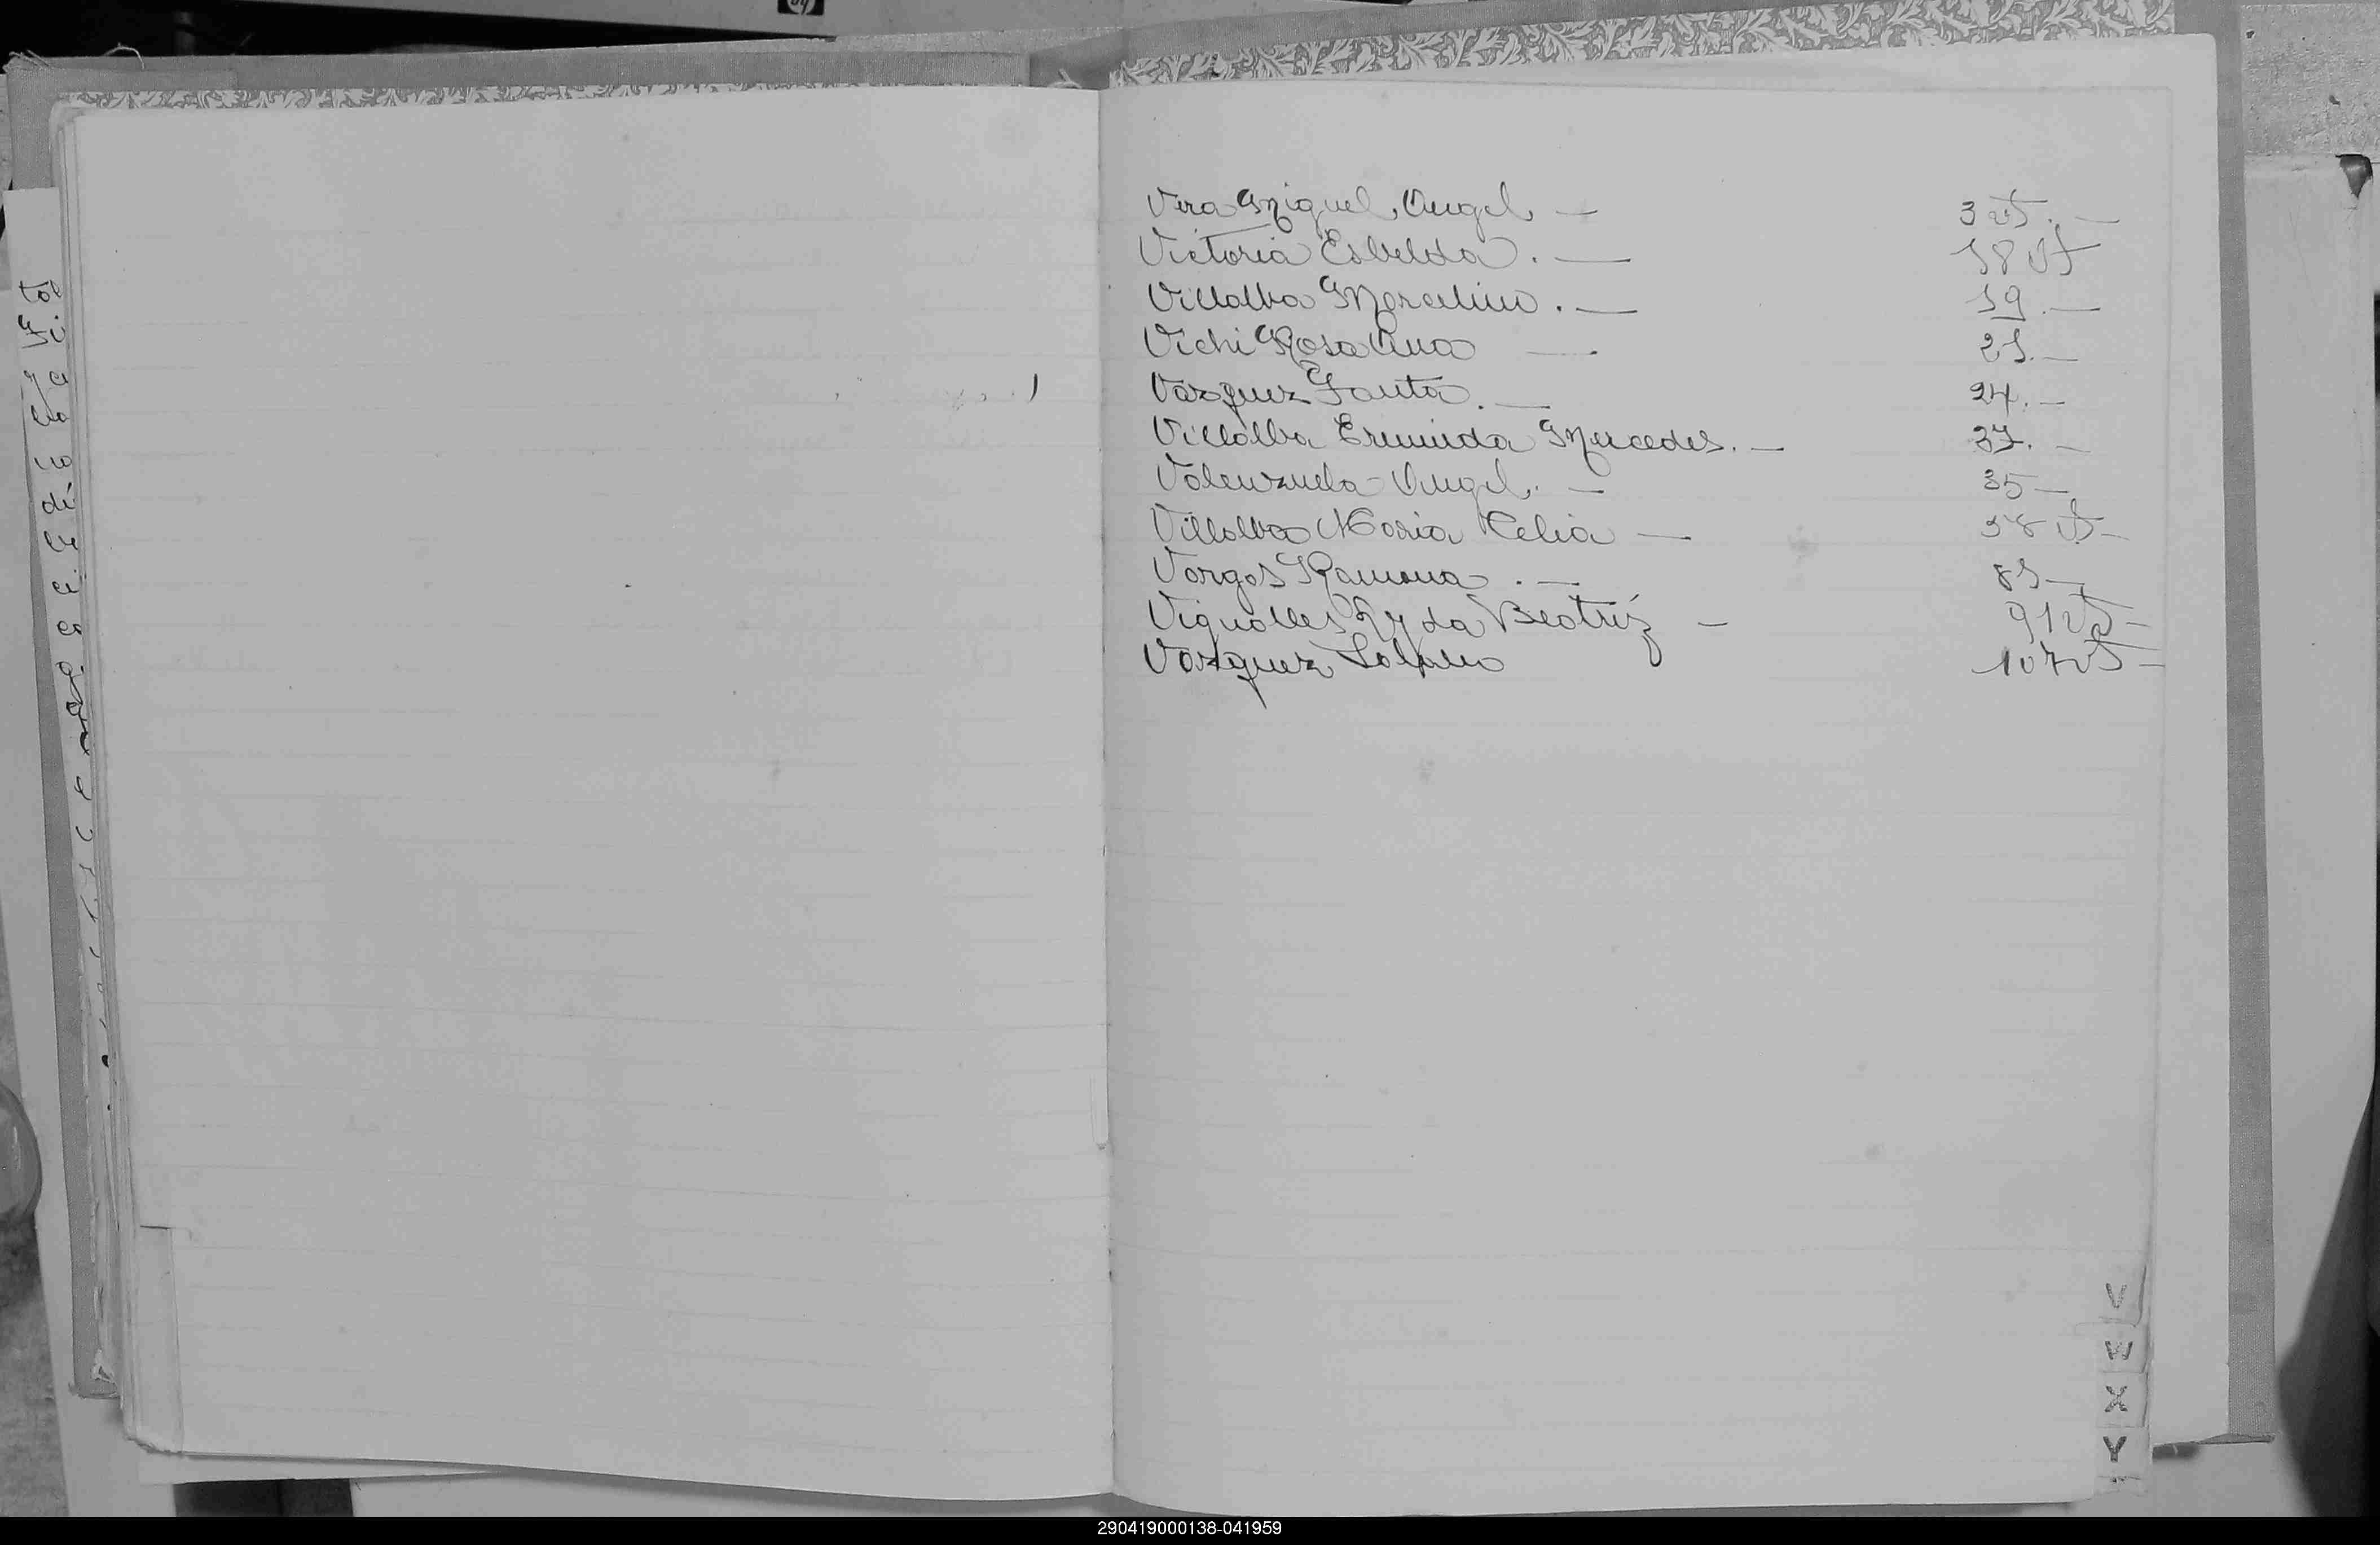 Vera Miguel Angel. — 3 vt. —
Victoria Esbelda. — 18 vt
Villalba Marcelino. — 19. —
Vichi Rosa Ana — 21. —
Vazquez Fausta. — 24. —
Villalba Erminda Mercedes. — 27. —
Valenzuela Angel. — 35 —
Villalba Maria Celia — 58 vt —
Vargas Ramona. — 81 —
Vignolles Beatriz — 91 vt —
Vazquez 107 vt —
V
W
X
Y
290419000138-041959